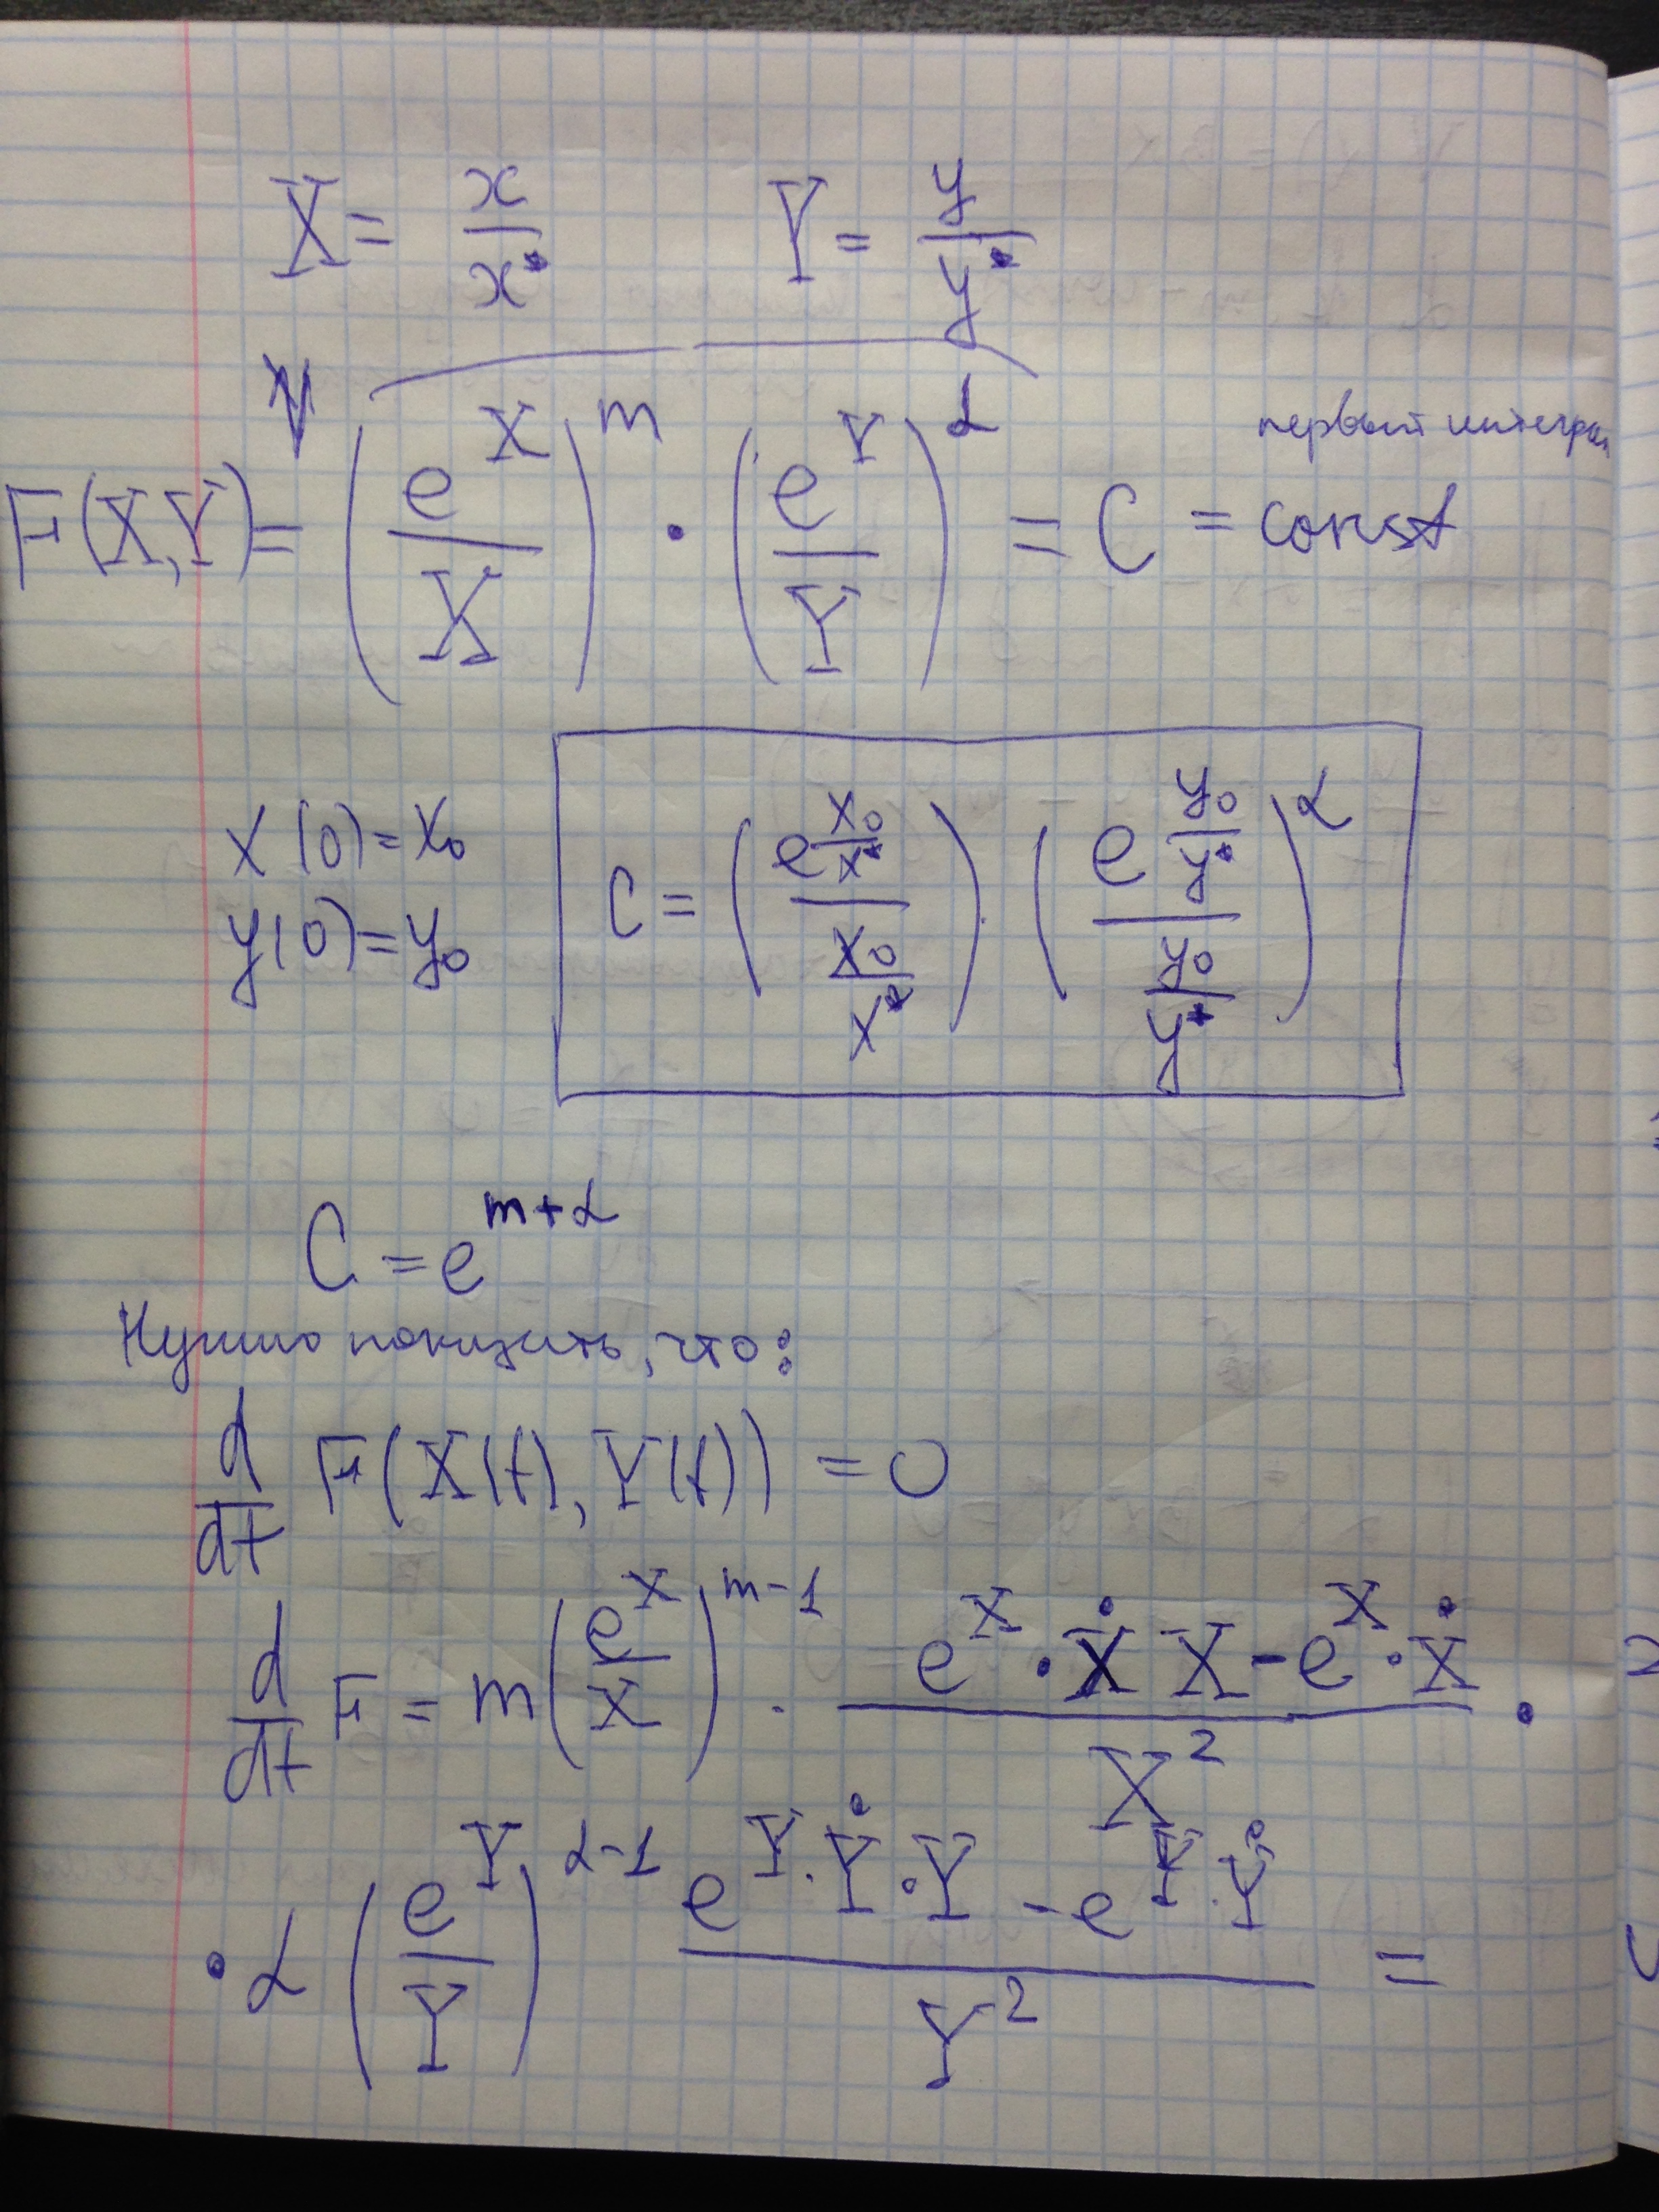 X = x/x* Y = y/y*
F(X,Y) = (e^X/X)^m · (e^Y/Y)^α = C = const
первый интеграл
x(0) = x₀
y(0) = y₀
C = (e^(x₀/x*)/(x₀/x*)) · (e^(y₀/y*)/(y₀/y*))^α
C = e^(m+α)
Нужно показать, что:
d/dt F(X(t), Y(t)) = 0
d/dt F = m(e^X/X)^(m-1) · (e^X · Ẋ X - e^X · Ẋ)/X² ·
· α (e^Y/Y)^(α-1) (e^Y · Ẏ · Y - e^Y · Ẏ)/Y² =